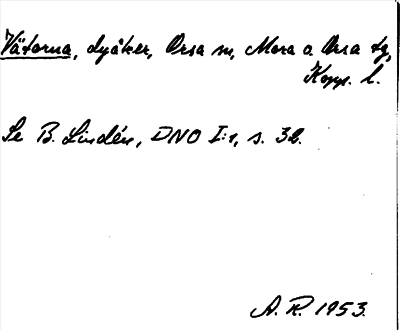 Vätorna, dyåker, Orsa sn, Mora o Orsa tg,
Kopp. l.
Se B. Lindén, DNO I:1, s. 32.
A. R. 1953.